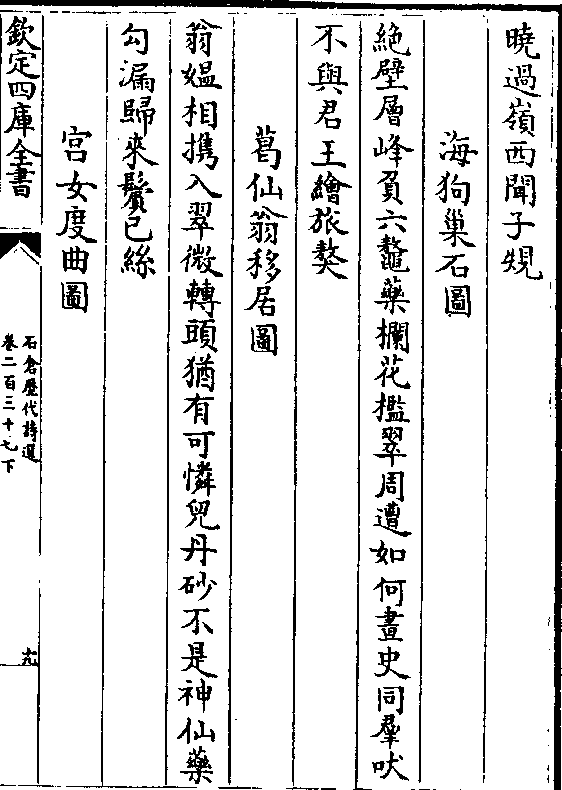 曉過嶺西聞子䂓
海狗巢石圖
絶壁層峰負六鼇藥欄花檻翠周遭如何畫史同羣吠
不與君王繪旅獒
葛仙翁移居圖
翁媼相携入翠微轉頭猶有可憐兒丹砂不是神仙藥
勾漏歸來鬢已絲
宫女度曲圖
欽定四庫全書
石倉歷代詩選
卷二百三十七下
十九